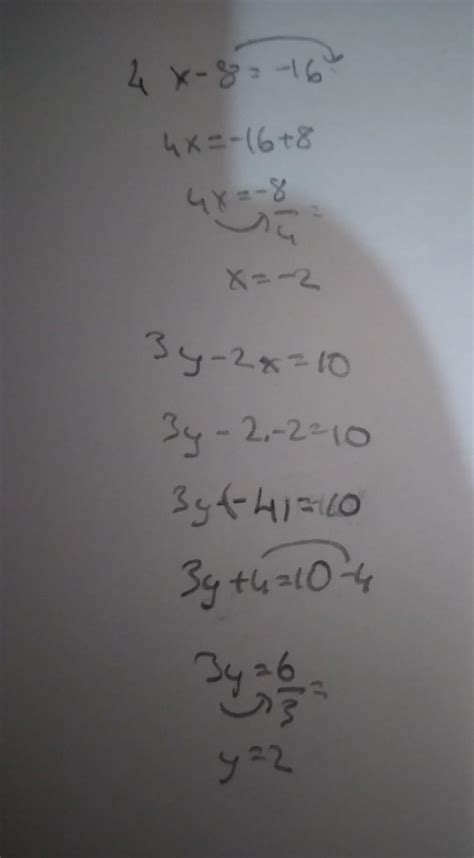 4 x-8=-16
4x=-16+8
4x=-8/4=
x=-2
3y-2x=10
3y-2.-2=10
3y(-4)=10
3y+4=10-4
3y=6/3=
y=2